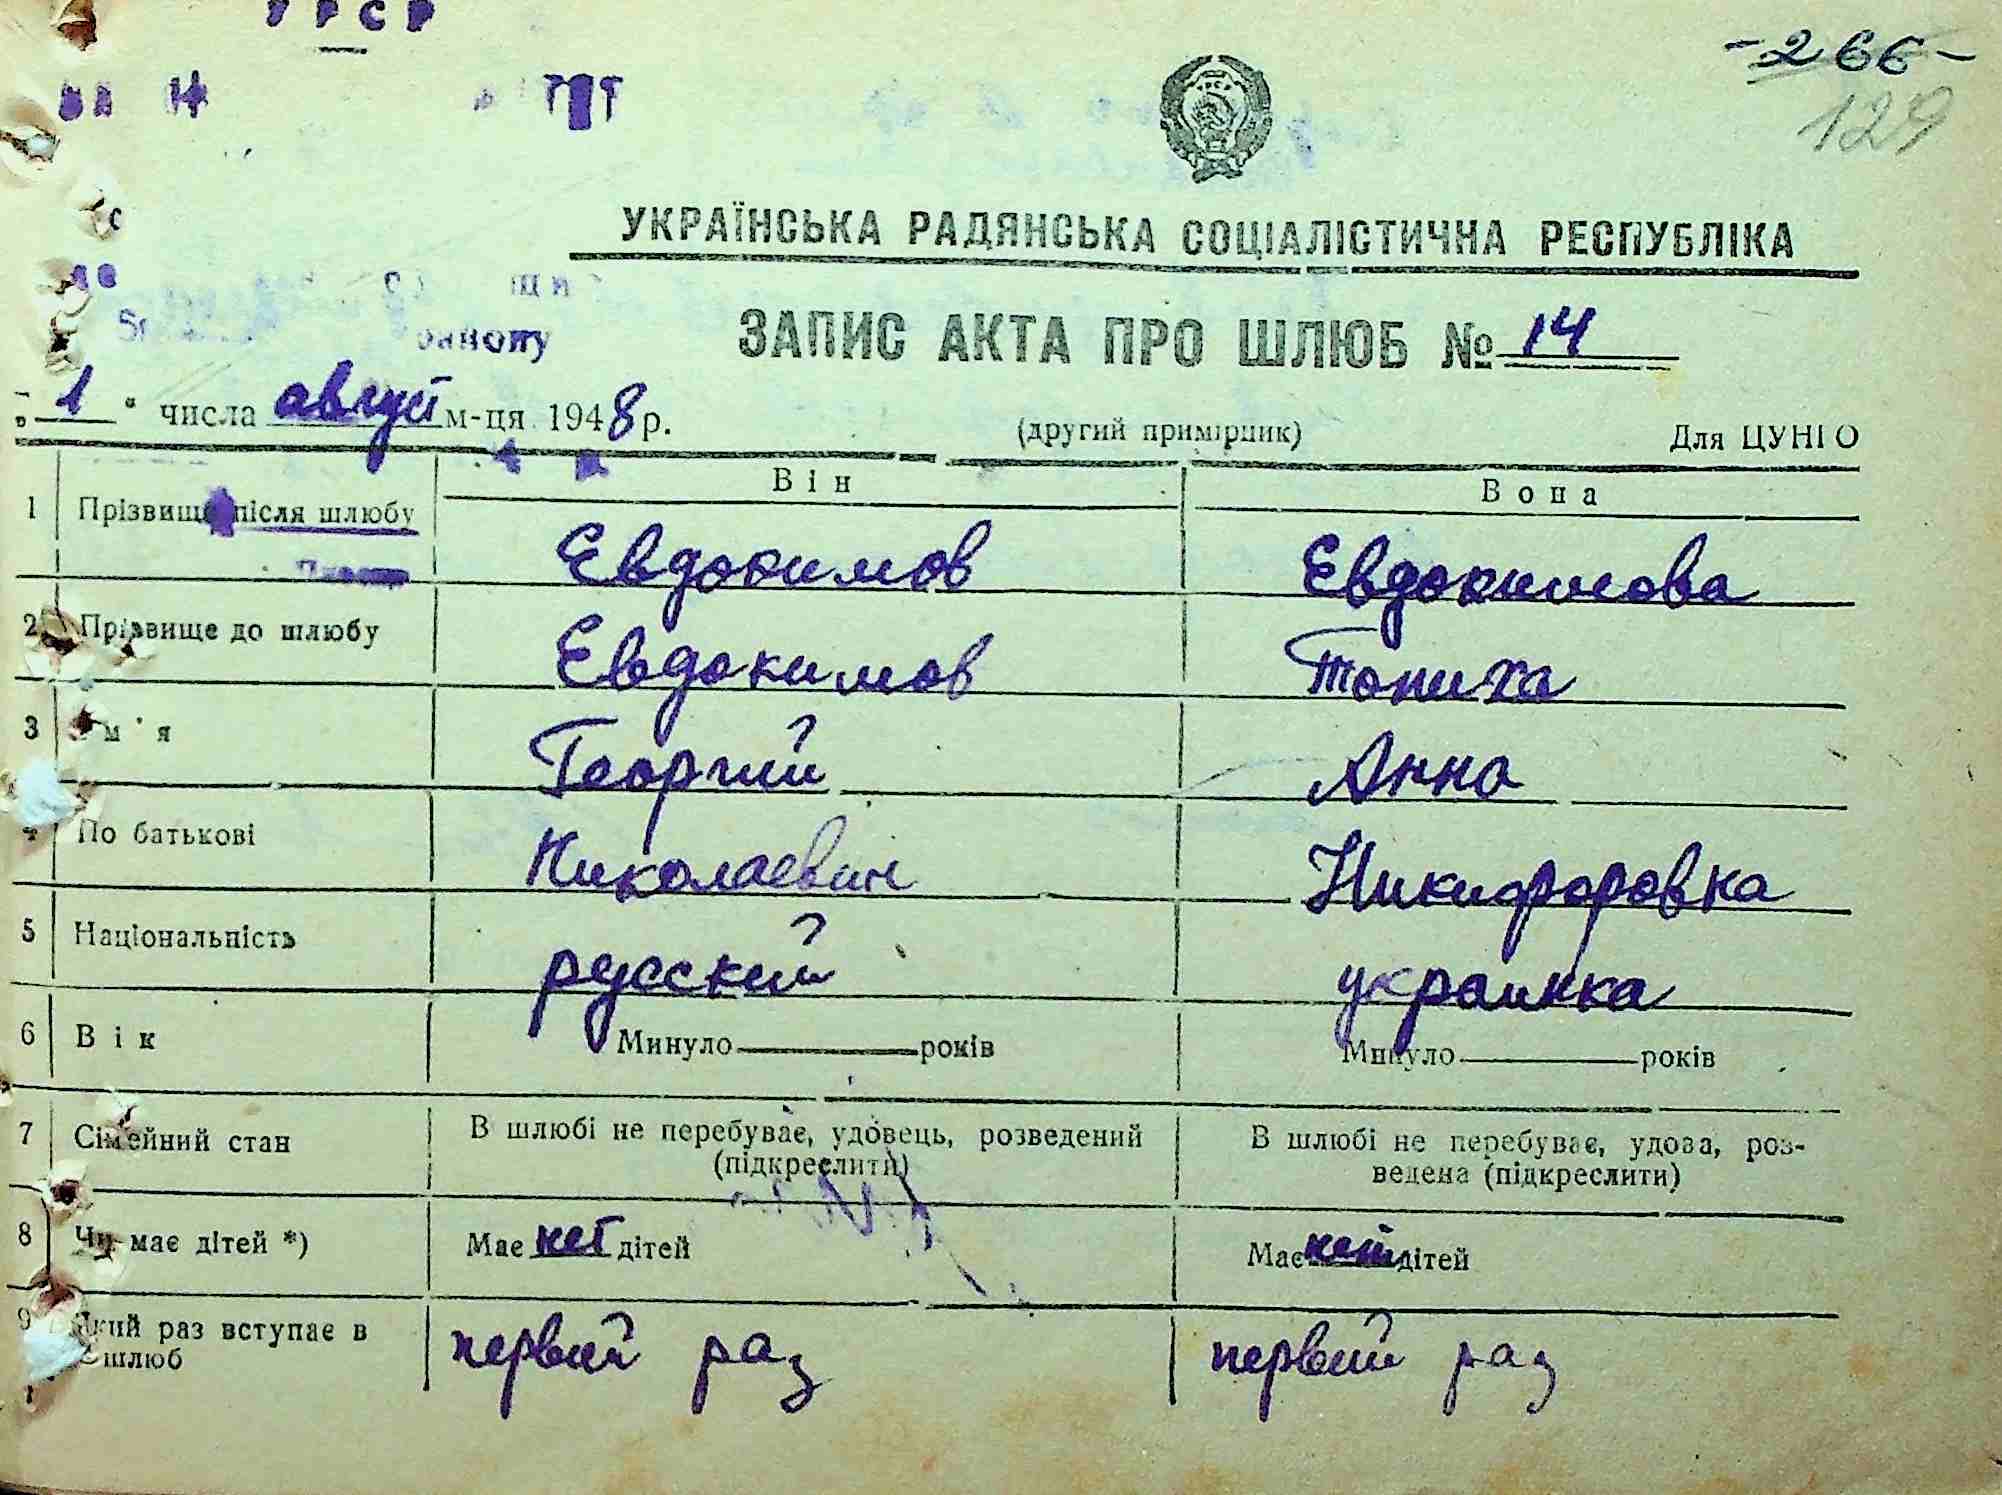 УРСР
-266-
129
УКРАЇНСЬКА РАДЯНСЬКА СОЦІАЛІСТИЧНА РЕСПУБЛІКА
ЗАПИС АКТА ПРО ШЛЮБ № 14
району
„1“ числа август м-ця 1948 р.
(другий примірник) Для ЦУНГО
Він Вона
1 Прізвище після шлюбу Евдокимов Евдокимова
2 Прізвище до шлюбу Евдокимов Топиха
3 Ім'я Георгий Анна
4 По батькові Николаевич Никифоровна
5 Національність русский украинка
6 Вік Минуло років Минуло років
7 Сімейний стан В шлюбі не перебуває, удовець, розведений (підкреслити) В шлюбі не перебуває, удова, роз-
ведена (підкреслити)
8 Чи має дітей *) Має нет дітей Має нет дітей
9 Який раз вступає в шлюб первый раз первый раз